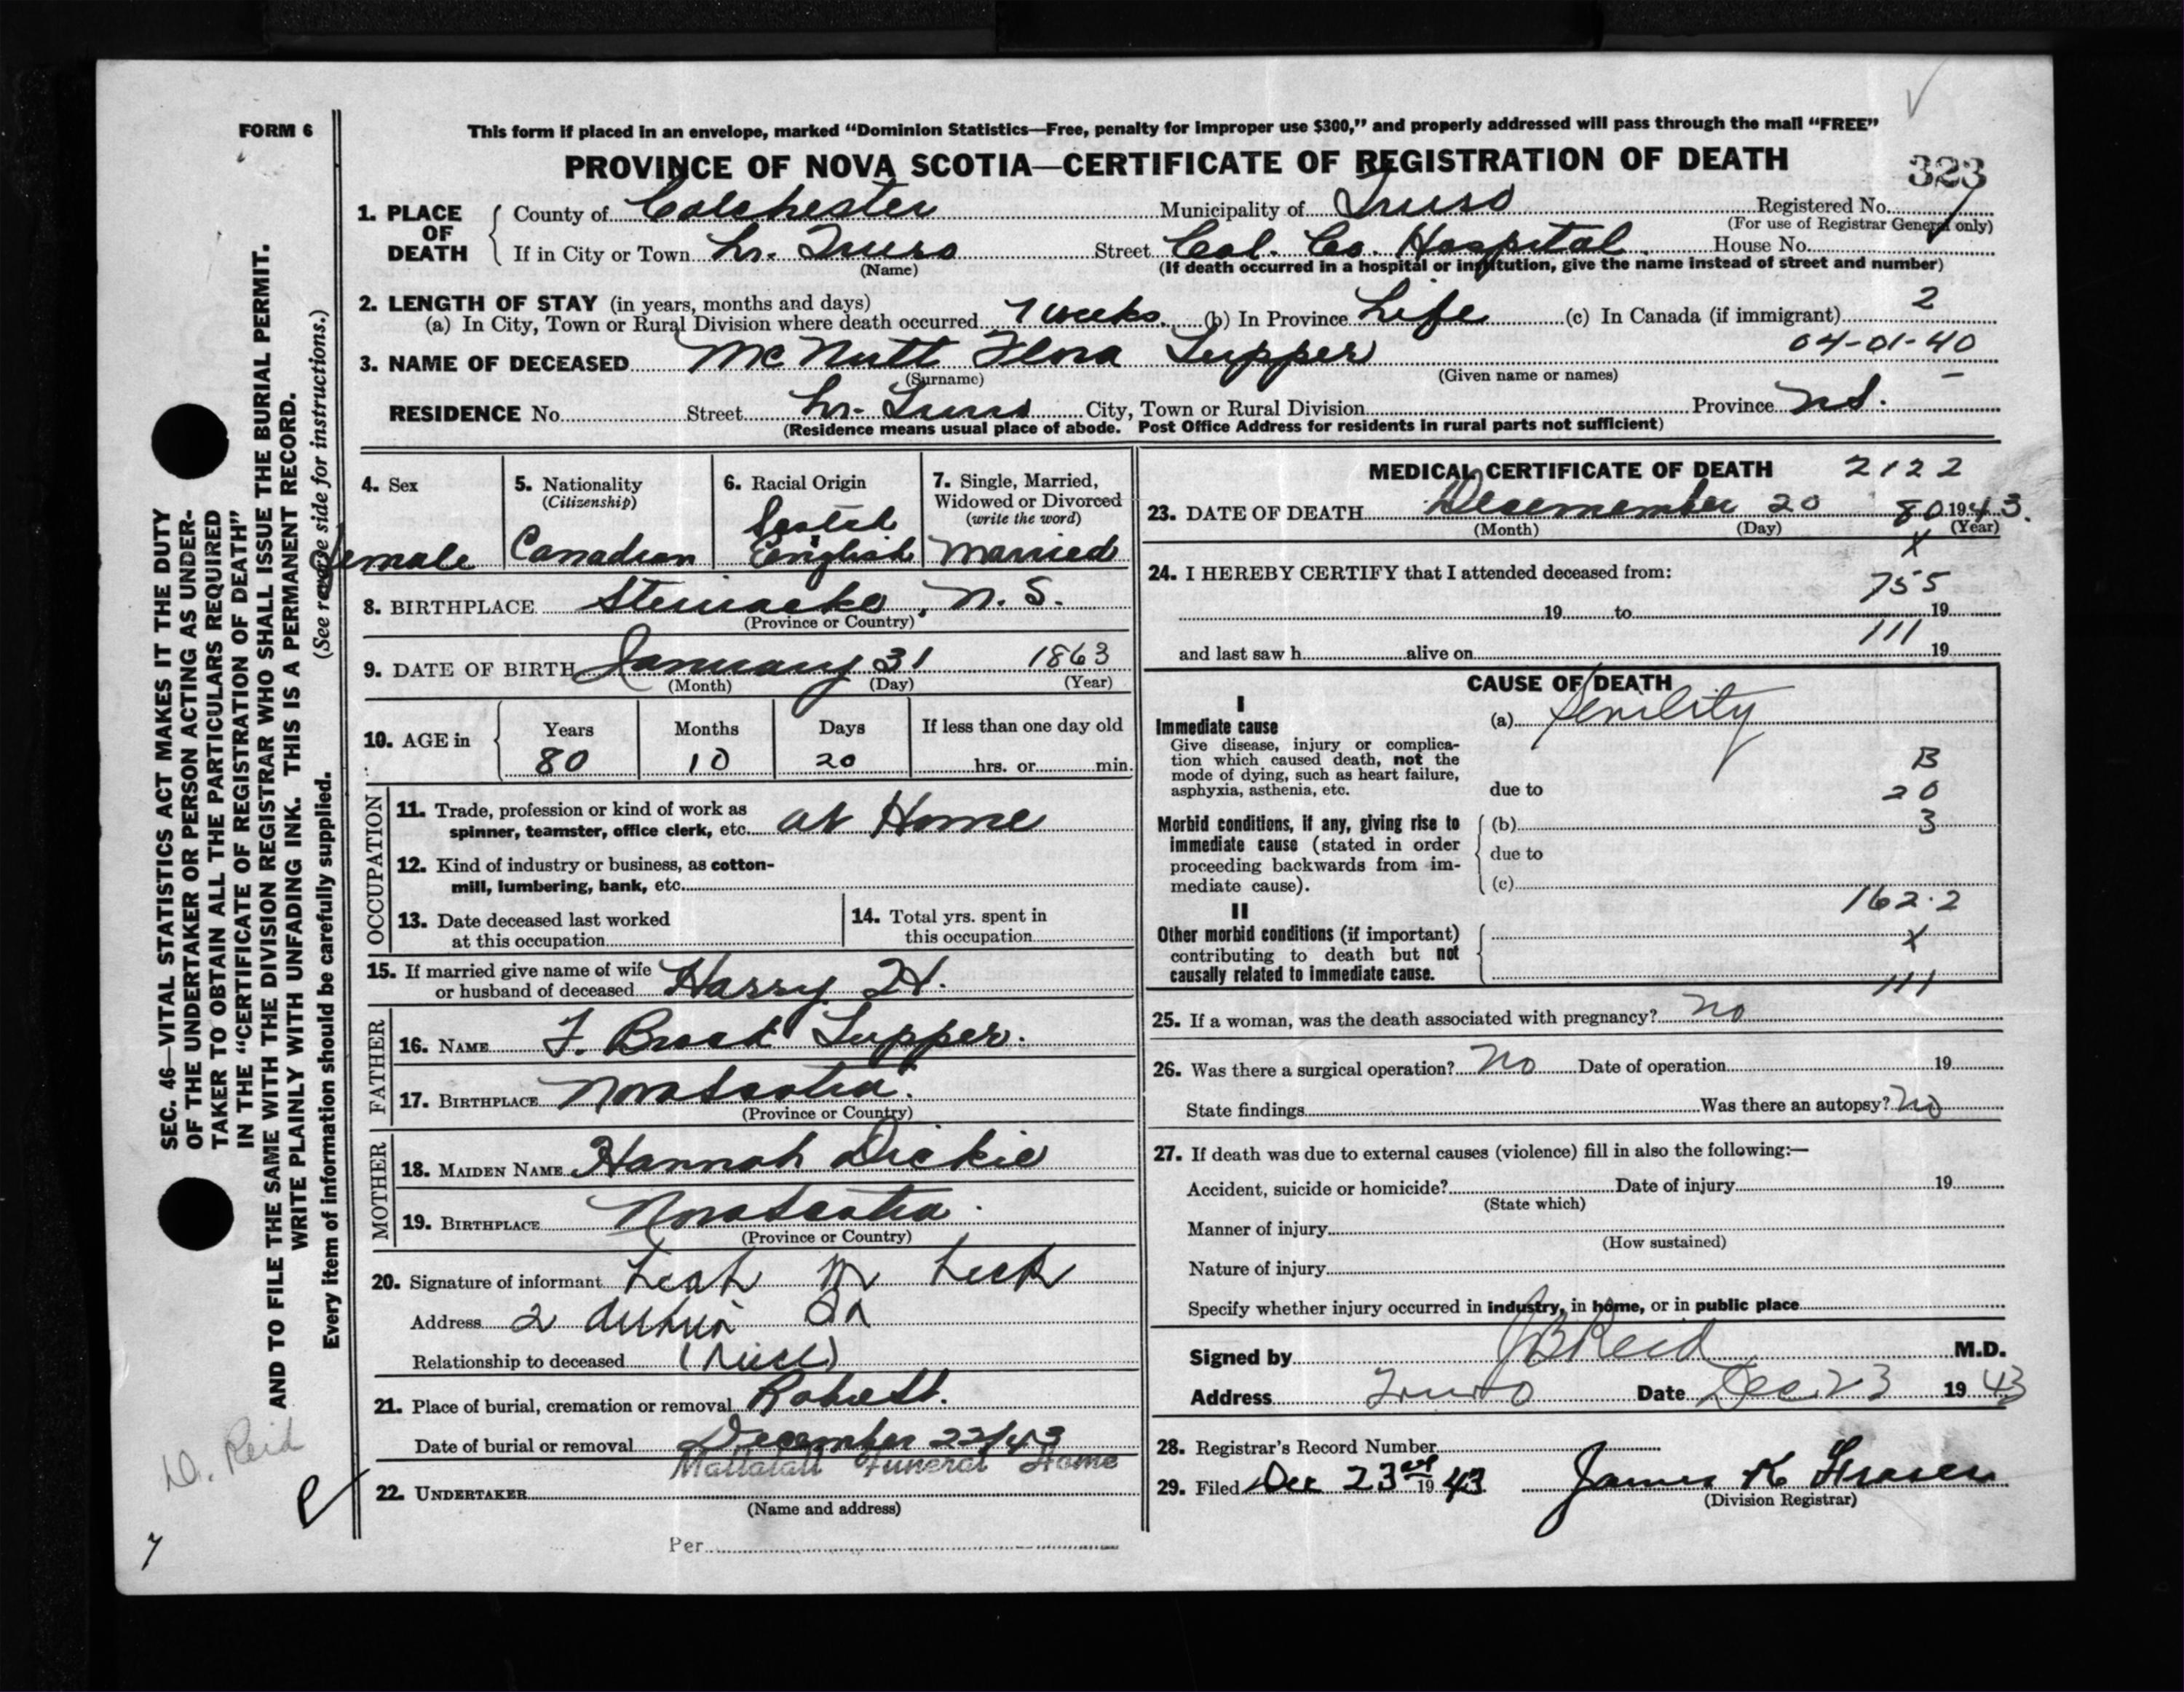 FORM 6
This form if placed in an envelope, marked “Dominion Statistics—Free, penalty for improper use $300,” and properly addressed will pass through the mail “FREE”
PROVINCE OF NOVA SCOTIA—CERTIFICATE OF REGISTRATION OF DEATH
323
1. PLACE OF DEATH
County of Colchester Municipality of Truro Registered No.
(For use of Registrar General only)
If in City or Town Lr. Truro Street Col. Co. Hospital House No.
(Name) (If death occurred in a hospital or institution, give the name instead of street and number)
2. LENGTH OF STAY (in years, months and days)
(a) In City, Town or Rural Division where death occurred 7 weeks (b) In Province Life (c) In Canada (if immigrant) 2
04-01-40
3. NAME OF DECEASED McNutt Flora Tupper
(Surname) (Given name or names)
RESIDENCE No. Street Lr. Truro City, Town or Rural Division Province N.S.
(Residence means usual place of abode. Post Office Address for residents in rural parts not sufficient)
4. Sex
female
5. Nationality
(Citizenship)
Canadian
6. Racial Origin
Scotch
English
7. Single, Married,
Widowed or Divorced
(write the word)
married
8. BIRTHPLACE Stewiacke, N. S.
(Province or Country)
9. DATE OF BIRTH January 31 1863
(Month) (Day) (Year)
10. AGE in
Years Months Days If less than one day old
80 10 20 hrs. or min.
OCCUPATION
11. Trade, profession or kind of work as
spinner, teamster, office clerk, etc. at Home
12. Kind of industry or business, as cotton-
mill, lumbering, bank, etc.
13. Date deceased last worked
at this occupation
14. Total yrs. spent in
this occupation
15. If married give name of wife
or husband of deceased Harry H.
FATHER
16. NAME F. Tupper.
17. BIRTHPLACE Nova Scotia.
(Province or Country)
MOTHER
18. MAIDEN NAME Hannah Dickie
19. BIRTHPLACE Nova Scotia.
(Province or Country)
20. Signature of informant Leah M
Address 2
Relationship to deceased
21. Place of burial, cremation or removal
Date of burial or removal December 22/43
Mattatall Funeral Home
22. UNDERTAKER
(Name and address)
Per
MEDICAL CERTIFICATE OF DEATH 2122
23. DATE OF DEATH Decemember 20 80 1943.
(Month) (Day) (Year)
X
24. I HEREBY CERTIFY that I attended deceased from:
755
19 to 19
111
and last saw h alive on 19
CAUSE OF DEATH
I
Immediate cause
Give disease, injury or complica-
tion which caused death, not the
mode of dying, such as heart failure,
asphyxia, asthenia, etc.
(a) Senility
due to
B
20
3
Morbid conditions, if any, giving rise to
immediate cause (stated in order
proceeding backwards from im-
mediate cause).
(b)
due to
(c)
162.2
X
111
II
Other morbid conditions (if important)
contributing to death but not
causally related to immediate cause.
25. If a woman, was the death associated with pregnancy? no
26. Was there a surgical operation? No Date of operation 19
State findings Was there an autopsy? No
27. If death was due to external causes (violence) fill in also the following:—
Accident, suicide or homicide? Date of injury 19
(State which)
Manner of injury
(How sustained)
Nature of injury
Specify whether injury occurred in industry, in home, or in public place
Signed by JB Reid M.D.
Address Truro Date Dec 23 1943
28. Registrar's Record Number
29. Filed Dec 23rd 1943 James K Fraser
(Division Registrar)
SEC. 46—VITAL STATISTICS ACT MAKES IT THE DUTY
OF THE UNDERTAKER OR PERSON ACTING AS UNDER-
TAKER TO OBTAIN ALL THE PARTICULARS REQUIRED
IN THE “CERTIFICATE OF REGISTRATION OF DEATH”
AND TO FILE THE SAME WITH THE DIVISION REGISTRAR WHO SHALL ISSUE THE BURIAL PERMIT.
WRITE PLAINLY WITH UNFADING INK. THIS IS A PERMANENT RECORD.
(See reverse side for instructions.)
Every item of information should be carefully supplied.
Dr. Reid
7